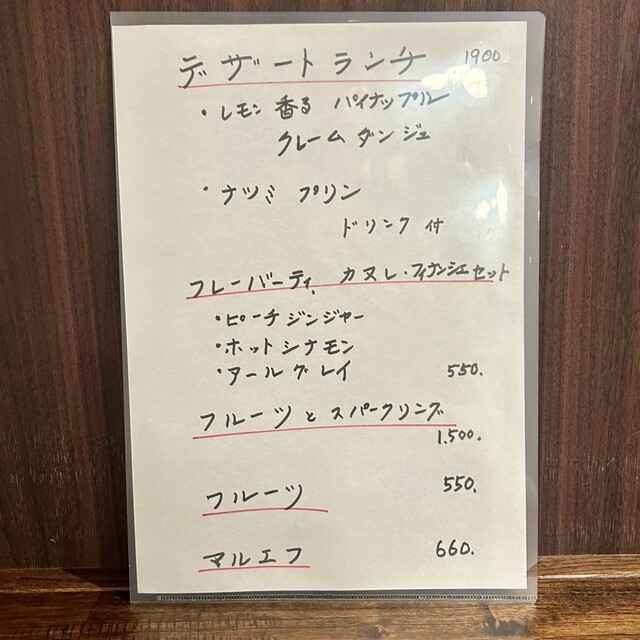 デザートランチ 1900
・レモン香る パイナップル
クレームダンジュ
・ナツミ プリン
ドリンク付
フレーバーティ、カヌレ・フィナンシェセット
・ピーチジンジャー
・ホットシナモン
・アールグレイ 550.
フルーツとスパークリング
1.500.
フルーツ 550.
マルエフ 660.